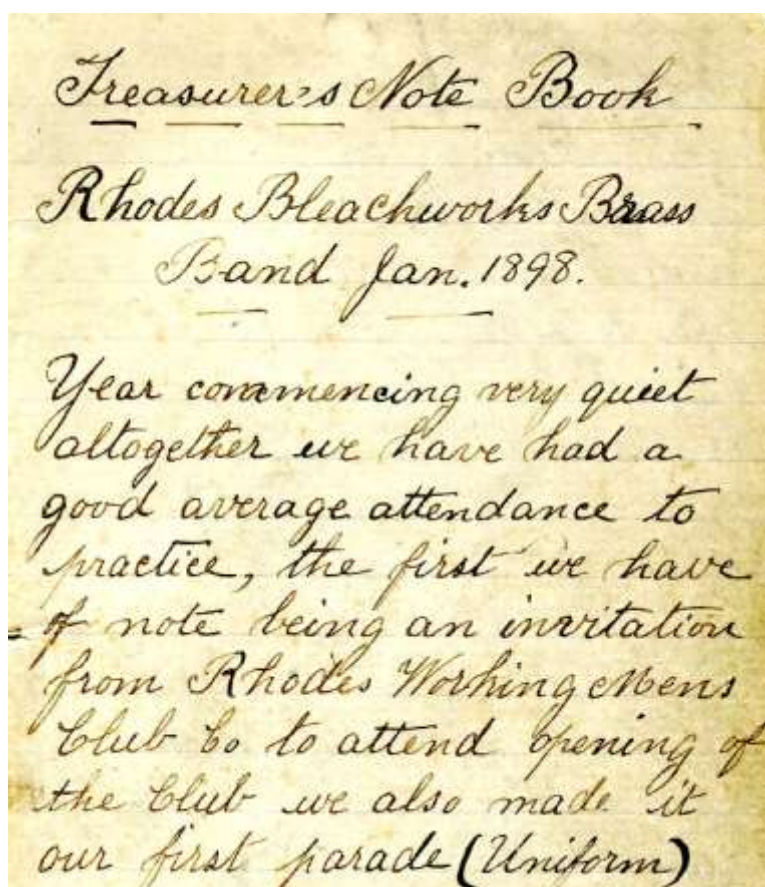 Treasurer's Note Book
Rhodes Bleachworks Brass
Band Jan. 1898.
Year commencing very quiet
altogether we have had a
good average attendance to
practice, the first we have
of note being an invitation
from Rhodes Working Mens
Club Co to attend opening of
the Club we also made it
our first parade (Uniform)